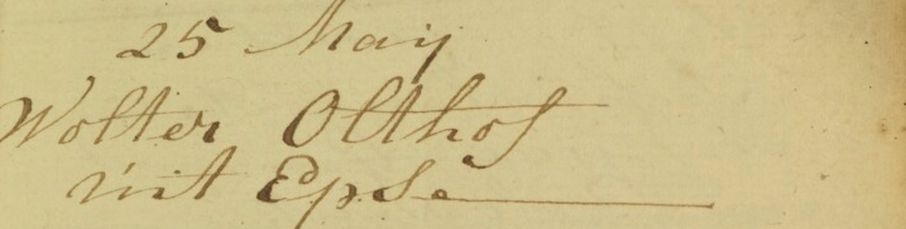 25 Maij
Wolter Olthof
uit Epse